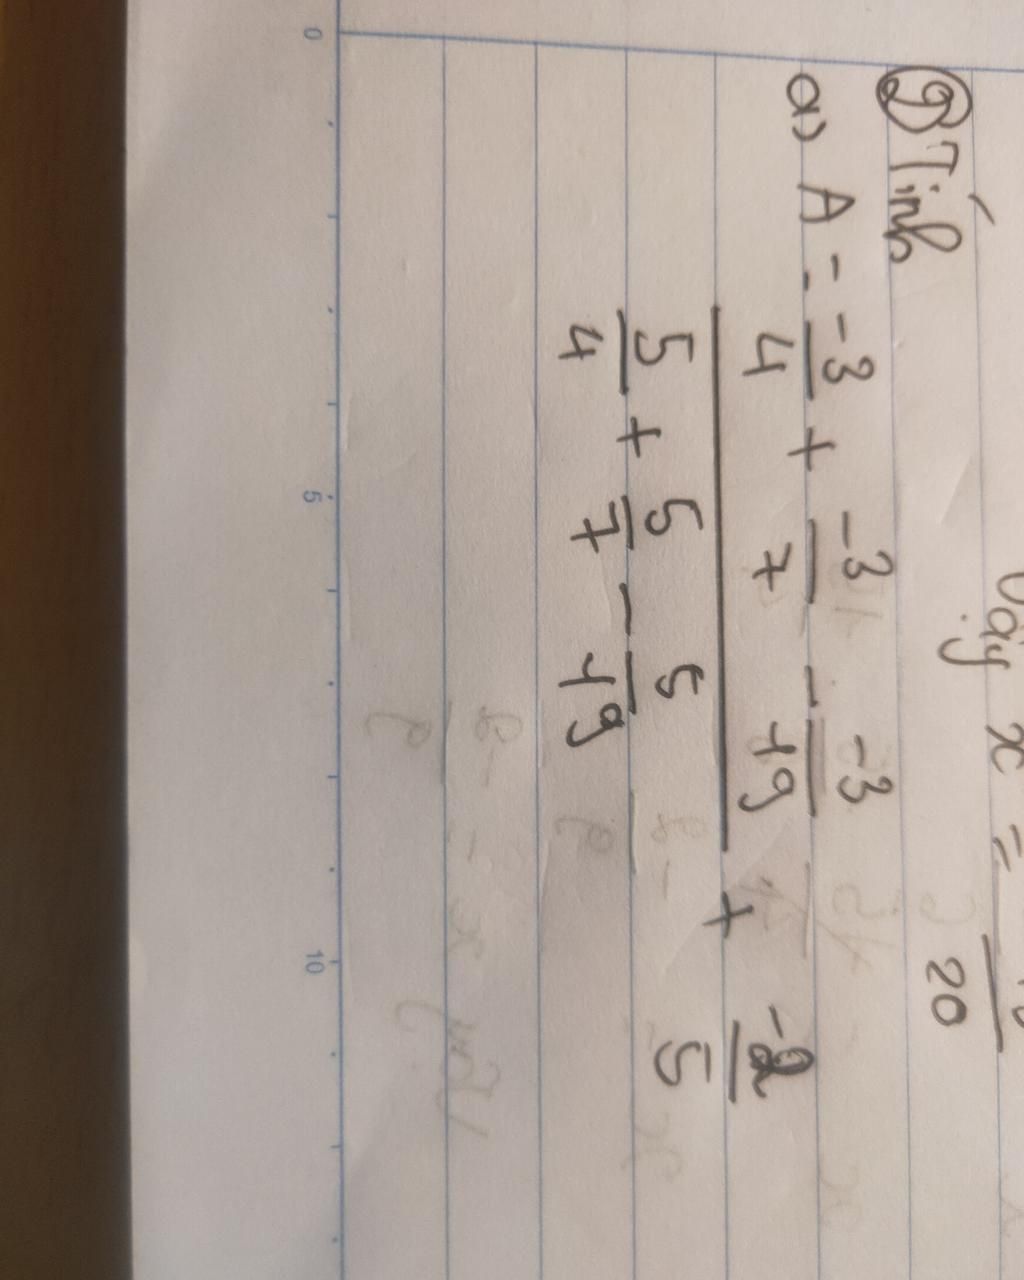 Vậy x = 20
② Tính
a) A = \frac{\frac{-3}{4} + \frac{-3}{7} - \frac{-3}{19}}{\frac{5}{4} + \frac{5}{7} - \frac{5}{19}} + \frac{-2}{5}
0 5 10